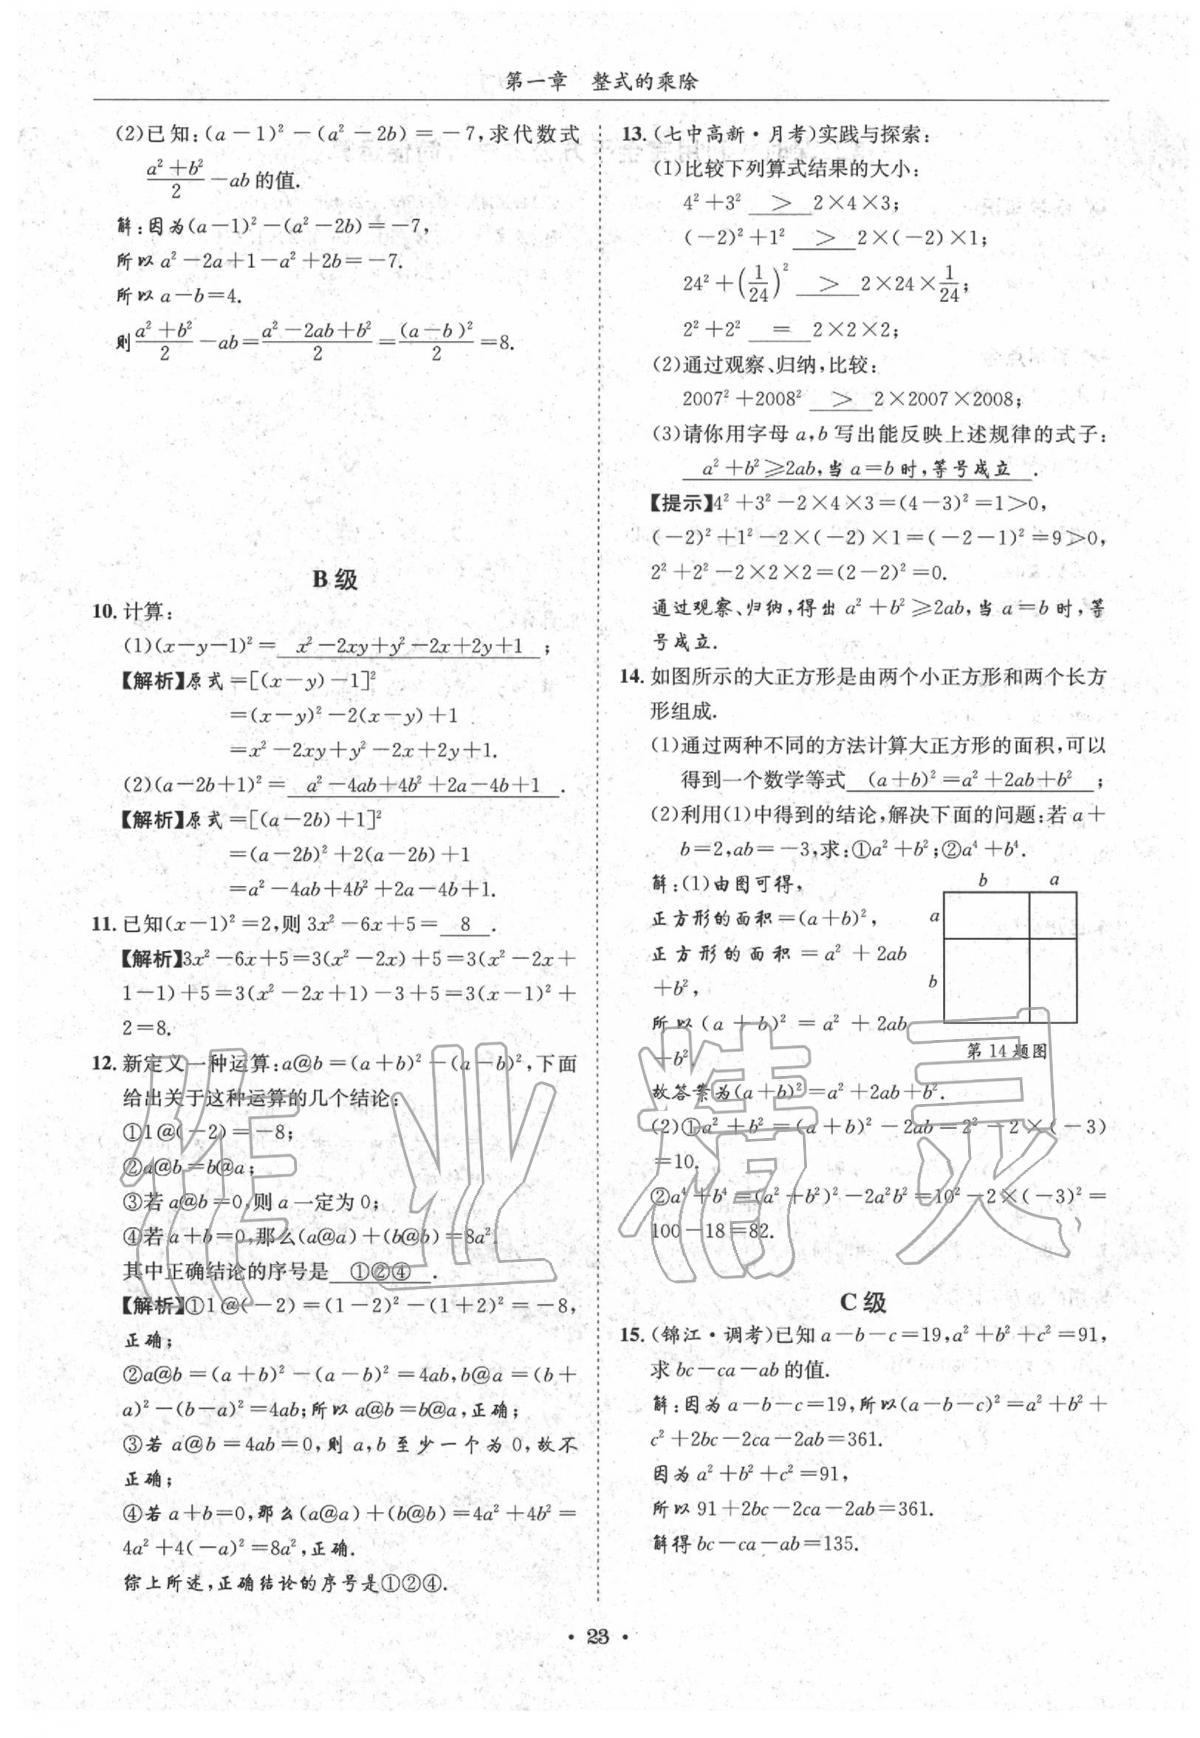 第一章　整式的乘除
(2)已知:(a－1)²－(a²－2b)＝－7,求代数式
(a²＋b²)/2－ab的值.
解:因为(a－1)²－(a²－2b)＝－7,
所以a²－2a＋1－a²＋2b＝－7.
所以a－b＝4.
则(a²＋b²)/2－ab＝(a²－2ab＋b²)/2＝(a－b)²/2＝8.
B级
10.计算:
(1)(x－y－1)²＝ x²－2xy＋y²－2x＋2y＋1 ;
【解析】原式＝[(x－y)－1]²
＝(x－y)²－2(x－y)＋1
＝x²－2xy＋y²－2x＋2y＋1.
(2)(a－2b＋1)²＝ a²－4ab＋4b²＋2a－4b＋1 .
【解析】原式＝[(a－2b)＋1]²
＝(a－2b)²＋2(a－2b)＋1
＝a²－4ab＋4b²＋2a－4b＋1.
11.已知(x－1)²＝2,则3x²－6x＋5＝ 8 .
【解析】3x²－6x＋5＝3(x²－2x)＋5＝3(x²－2x＋
1－1)＋5＝3(x²－2x＋1)－3＋5＝3(x－1)²＋
2＝8.
12.新定义一种运算:a@b＝(a＋b)²－(a－b)²,下面
给出关于这种运算的几个结论:
①1@(－2)＝－8;
②a@b＝b@a;
③若a@b＝0,则a一定为0;
④若a＋b＝0,那么(a@a)＋(b@b)＝8a².
其中正确结论的序号是 ①②④ .
【解析】①1@(－2)＝(1－2)²－(1＋2)²＝－8,
正确;
②a@b＝(a＋b)²－(a－b)²＝4ab,b@a＝(b＋
a)²－(b－a)²＝4ab;所以a@b＝b@a,正确;
③若a@b＝4ab＝0,则a,b至少一个为0,故不
正确;
④若a＋b＝0,那么(a@a)＋(b@b)＝4a²＋4b²＝
4a²＋4(－a)²＝8a²,正确.
综上所述,正确结论的序号是①②④.
13.(七中高新·月考)实践与探索:
(1)比较下列算式结果的大小:
4²＋3² ＞ 2×4×3;
(－2)²＋1² ＞ 2×(－2)×1;
24²＋(1/24)² ＞ 2×24×1/24;
2²＋2² ＝ 2×2×2;
(2)通过观察、归纳,比较:
2007²＋2008² ＞ 2×2007×2008;
(3)请你用字母a,b写出能反映上述规律的式子:
a²＋b²≥2ab,当a＝b时,等号成立 .
【提示】4²＋3²－2×4×3＝(4－3)²＝1＞0,
(－2)²＋1²－2×(－2)×1＝(－2－1)²＝9＞0,
2²＋2²－2×2×2＝(2－2)²＝0.
通过观察、归纳,得出a²＋b²≥2ab,当a＝b时,等
号成立.
14.如图所示的大正方形是由两个小正方形和两个长方
形组成.
(1)通过两种不同的方法计算大正方形的面积,可以
得到一个数学等式 (a＋b)²＝a²＋2ab＋b² ;
(2)利用(1)中得到的结论,解决下面的问题:若a＋
b＝2,ab＝－3,求:①a²＋b²;②a⁴＋b⁴.
解:(1)由图可得,
正方形的面积＝(a＋b)²,
正方形的面积＝a²＋2ab
＋b²,
所以(a＋b)²＝a²＋2ab
＋b².
b
a
a
b
第14题图
故答案为(a＋b)²＝a²＋2ab＋b².
(2)①a²＋b²＝(a＋b)²－2ab＝2²－2×(－3)
＝10.
②a⁴＋b⁴＝(a²＋b²)²－2a²b²＝10²－2×(－3)²＝
100－18＝82.
C级
15.(锦江·调考)已知a－b－c＝19,a²＋b²＋c²＝91,
求bc－ca－ab的值.
解:因为a－b－c＝19,所以(a－b－c)²＝a²＋b²＋
c²＋2bc－2ca－2ab＝361.
因为a²＋b²＋c²＝91,
所以91＋2bc－2ca－2ab＝361.
解得bc－ca－ab＝135.
·23·
作业精灵